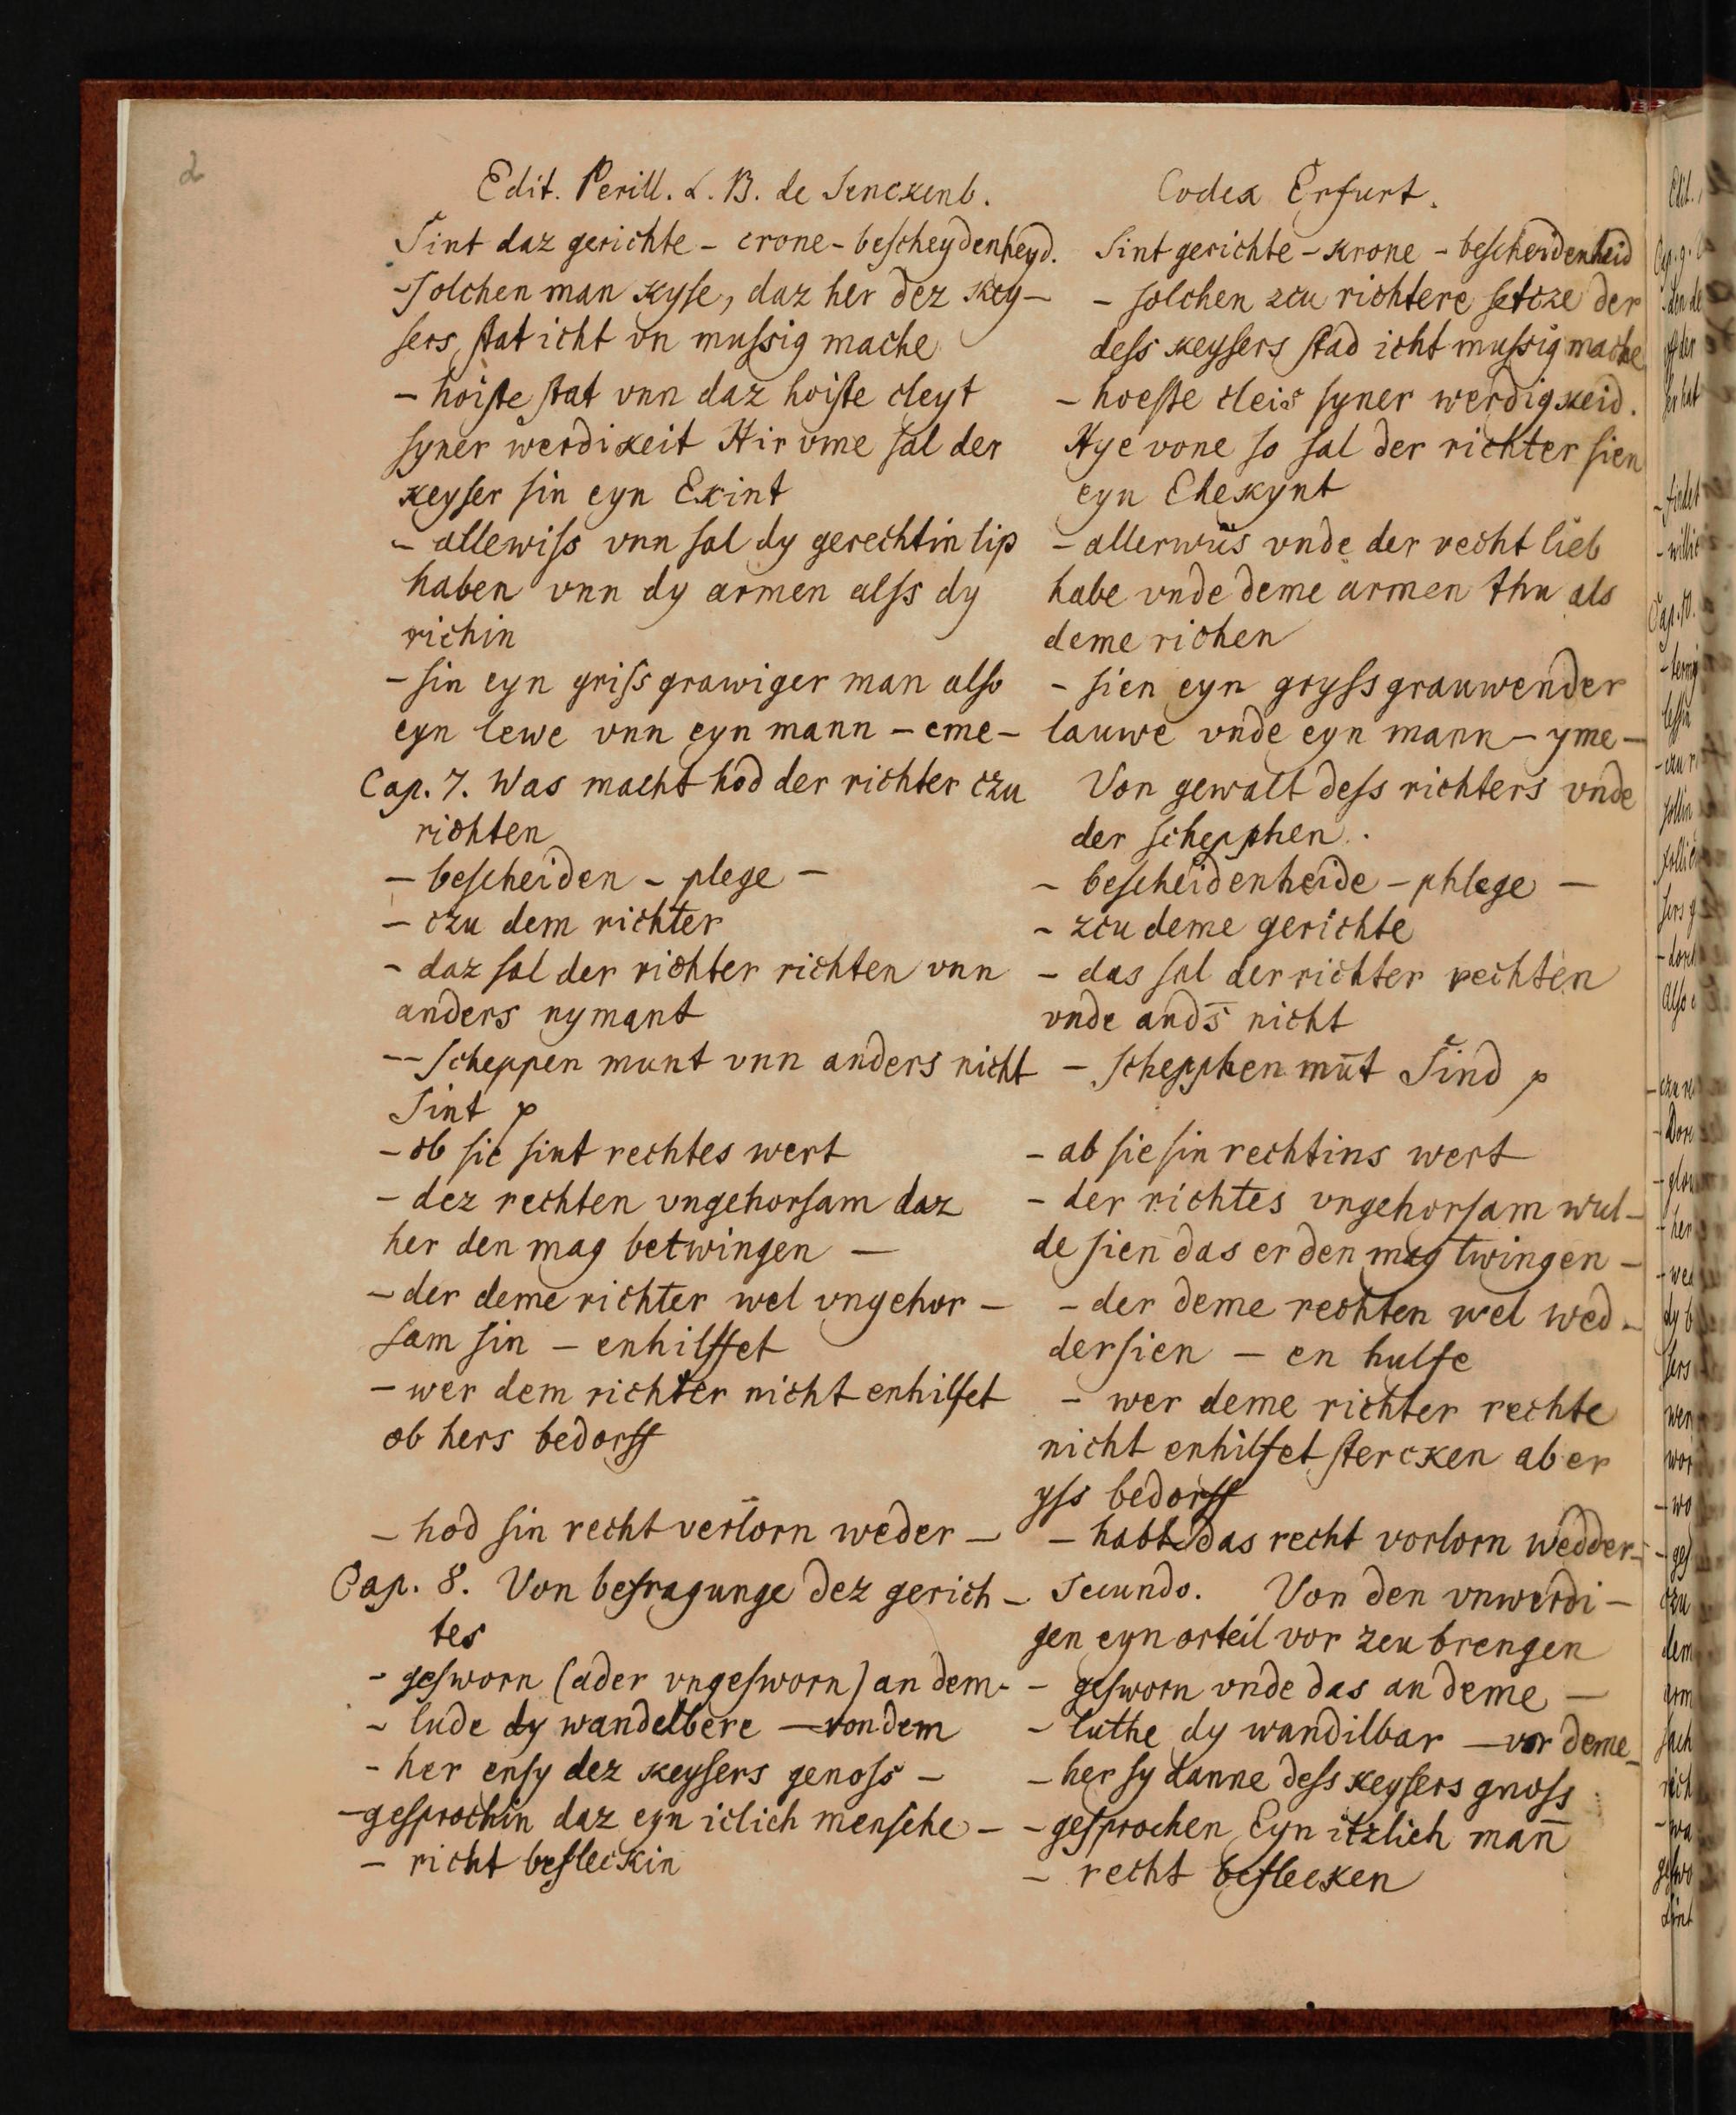 2
Edit. Perill. L. B. de Senckenb.
Sint daz gerichte – crone – bescheydenheyd.
– solchen man kyse, daz her dez key–
sers stat icht vn mussig mache
– hoiste stat vnn daz hoiste cleyt
syner werdikeit Hir vme sal der
keyser sin eyn Ekint
– allewiss vnn sal dy gerechtin lip
haben vnn dy armen alss dy
richin
– sin eyn griss grawiger man also
eyn lewe vnn eyn mann – eme –
Cap. 7. Was macht hod der richter czu
richten
– bescheiden – plege –
– czu dem richter
– daz sal der richter richten vnn
anders nymant
–– scheppen munt vnn anders nicht
Sint p
– ob sie sint rechtes wert
– dez rechten vngehorsam daz
her den mag betwingen –
– der deme richter wel vngehor –
sam sin – enhilffet
– wer dem richter nicht enhilfet
ob hers bedorff
– hod sin recht verlorn weder –
Cap. 8. Von befragunge dez gerich –
tes
– gesworn (ader vngesworn) an dem –
– lude dy wandelbere – von dem
– her ensy dez keysers genoss –
– gesprochin daz eyn iclich mensche –
– richt befleckin
Codex Erfurt.
Sint gerichte – krone – bescheidenheid
– solchen zcu richtere setcze der
dess keysers stad icht mussig mache
– hoeste cleis syner werdigkeid.
Hye vone so sal der richter sien
eyn Ehekynt
– allerwiis vnde der recht lieb
habe vnde deme armen thu als
deme richen
– sien eyn gryss grauwender
lauwe vnde eyn mann – yme –
Von gewalt dess richters vnde
der schepphen.
– bescheidenheide – phlege –
– zcu deme gerichte
– das sal der richter rechten
vnde and̄s nicht
– schepphen mūt Sind p
– ab sie sin rechtins wert
– der richtes vngehorsam wul–
de sien das er den mag twingen –
– der deme rechten wel wed –
dersien – en hulfe
– wer deme richter rechte
nicht enhilfet stercken aber
yss bedorff
– habt das recht vorlorn wedder–
Secundo. Von den vnwerdi –
gen eyn orteil vor zcu brengen
– gesworn vnde das an deme –
– luthe dy wandilbar – vor deme –
– her sy danne dess keysers gnoss
– gesprochen Eyn itzlich man̄
– recht beflecken